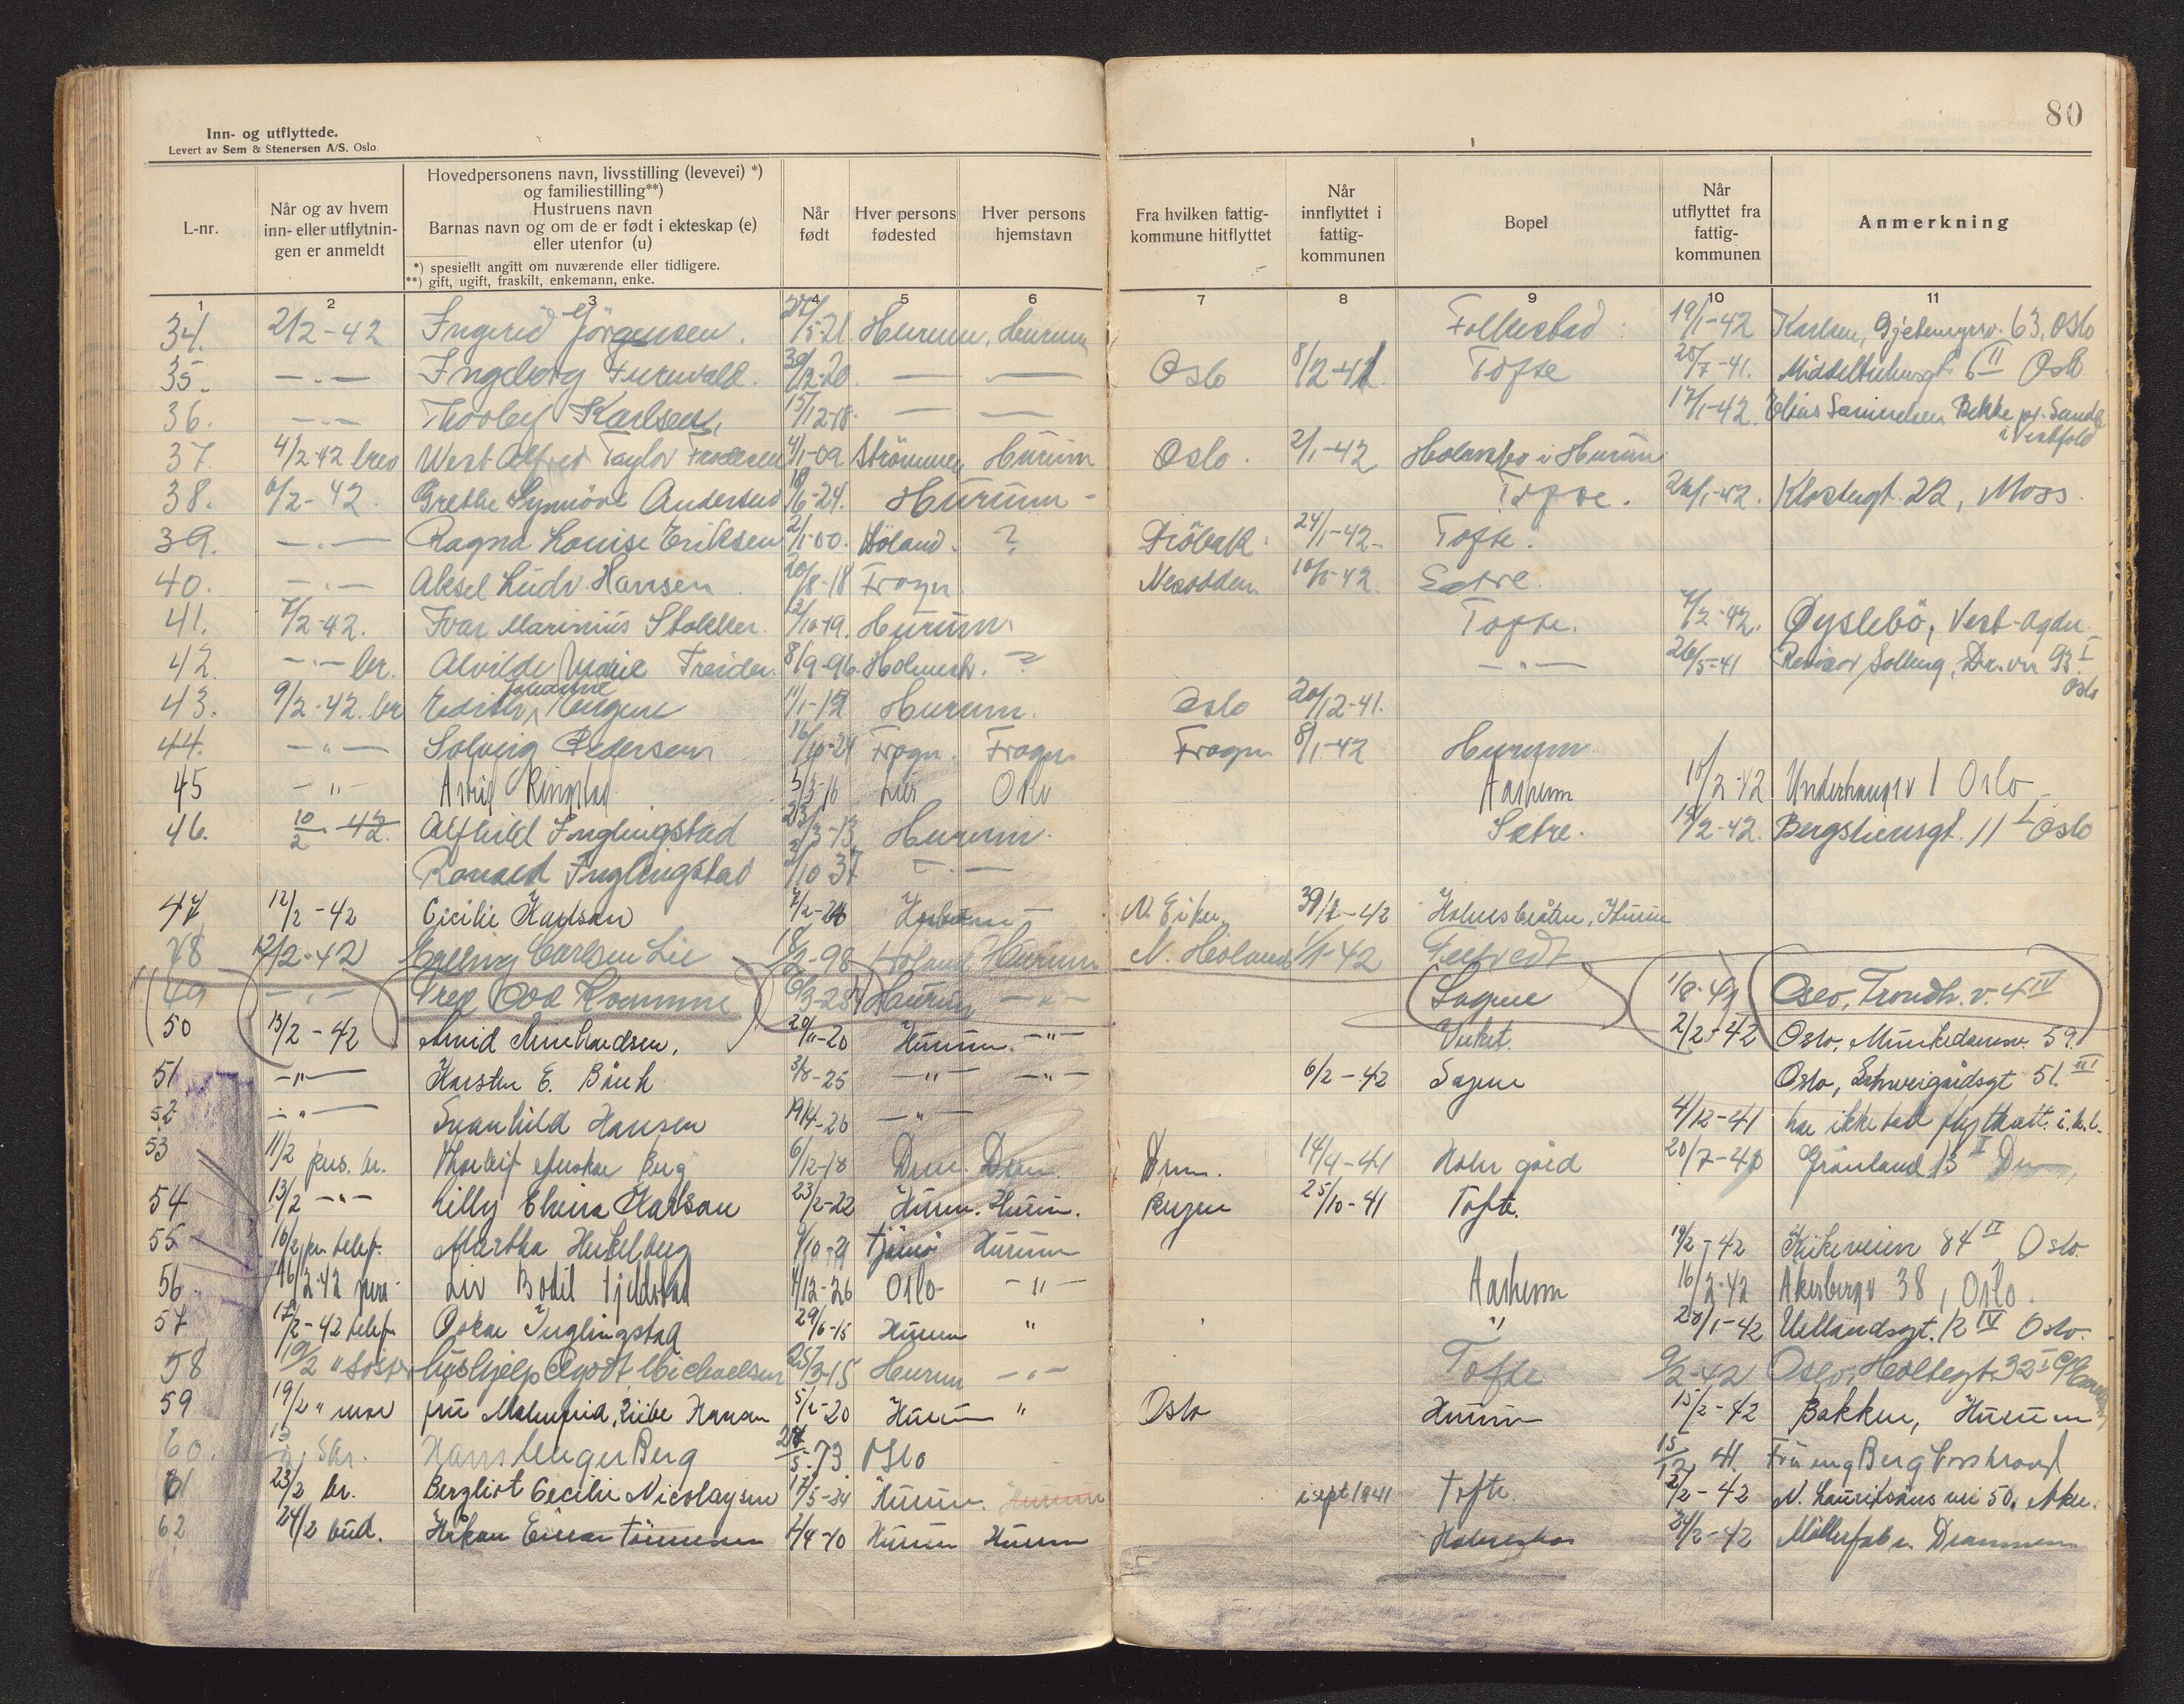 80
Inn- og utflyttede.
Levert av Sem & Stenersen A/S. Oslo.
L-nr.
Når og av hvem inn- eller utflytnin-gen er anmeldt
Hovedpersonens navn, livsstilling (levevei) *) og familiestilling**)
Hustruens navn
Barnas navn og om de er født i ekteskap (e) eller utenfor (u)
*) spesielt angitt om nuværende eller tidligere.
**) gift, ugift, fraskilt, enkemann, enke.
Når født
Hver persons fødested
Hver persons hjemstavn
Fra hvilken fattig-kommune hitflyttet
Når innflyttet i fattig-kommunen
Bopel
Når utflyttet fra fattig-kommunen
Anmerkning
1 2 3 4 5 6 7 8 9 10 11
34. 2/2-42 Ingerid Jörgensen. /5-21. Hurum, Hurum 19/1-42 Karlsen, 63, Oslo
35. -.- Ingeborg 30/12-20. — — Oslo 8/2-41. Tofte 25/7-41. 6 II Oslo
36. -.- Thorleif Karlsen, 15/12-18. — — 17/1-42. Elias Bekke pr. Sande i Vestfold
37. 4/2-42 brev West Alfred Taylor 4/1-09 Strömmen Hurum Oslo. 2/1-42 Holmsbo i Hurum
38. 6/2-42. Grethe Synnöve Andersen 18/6-24. Hurum - Tofte. 26/1-42. Klostergt. 22, Moss.
39. -.- Ragna Louise Eriksen 2/1-00. Höland. ? Dröbak. 24/1-42- Tofte.
40. -.- Aksel Ludv. Hansen 20/8-18 Frogn. Nesodden 10/-42. Sætre.
41. 7/2-42. Ivar Marinius Stokker. 13/10-19. Hurum Tofte. 7/2-42. Øyslebö, Vest-Agder.
42. -.- br. Alvilde Marie 8/9-96. Holmestr. ? -"- 26/5-41 Revisor Solberg, 93 I Oslo
43. 9/2-42. br Edith Johanne 11/1-12 Hurum. Oslo 20/12-41.
44. -"- Solveig Pedersen 16/10-24 Frogn. Frogn. Frogn 8/1-42 Hurum.
45 -"- Astrid Ringstad 5/3-16 Lier Oslo Aasheim 10/2-42 Underhaugsv 1 Oslo
46. 10/2-42. Alfhild Inglingstad 23/3-13 Hurum. Sætre. 12/2-42. Bergstiensgt. 11 I Oslo
Ronald Inglingstad 2/10 37 -.-
47 12/2-42 Cicilie Karlsen 7/2-26 - N. Eiker 30/1-42 Holmsbråten, Hurum
48 12/2-42 Carlsen Lie 18/2-98 Höland Hurum N. Höland 1/1-42
49 -.- 6/3-25 Hurum -"- Sagene 1/8-41 Oslo, Trondh.v. 4 IV
50 13/2-42 Arvid 20/11-20 Hurum. -"- 2/2-42 Oslo, Munkedamsv. 59.
51 -"- Karsten E. Bäch 3/8-25 -"- -"- 6/2-42 Sagene Oslo, Schweigårdsgt 51. III
52 -"- Svanhild Hansen 19/4-26 -"- 4/12-41 har ikke tatt
53 11/2 pers. br. Thorleif Berg 6/12-18 Dram. Dram. Dram. 14/4-41 Holm gård 20/7-41 Grönland 13 I Dram.
54 13/2 -"- Lilly Karlsen 23/2-22 Hurum. Hurum. Bergen 25/10-41 Tofte.
55 16/2 pr. telef. Martha Tjömö Hurum 19/2-42 Kirkeveien 84 II Oslo.
56 16/2-42 pers. Liv Bodil Fjeldstad 4/12-26 Oslo -"- Aasheim 16/2-42 Akerbergv 38, Oslo.
57 17/2-42 telef. Oskar Inglingstad 29/6-15 Hurum " " 28/1-42 Uellandsgt. 12 IV Oslo.
58 19/2 " søster hushjelp Agot Michaelsen 25/3-15 Hurum -"- Tofte 9/2-42 Oslo, Holtegt. 32 I
59 19/2 " mor fru Malmfrid Hansen 5/2-20 Hurum " Oslo Hurum 15/2-42 Bakken, Hurum
60. Hans Unger Berg /5-73 Oslo 15/12 41. Fru eng Berg
61 23/2 br. Bergliot Cecilie Nicolaysen 17/5-24 Hurum. Hurum i sept 1941 Tofte. 2/2-42 N. 50, Aker.
62 24/2 bud. Håkon Einar 2/4-10 Hurum Hurum Holmsbo 24/2-42 Drammen